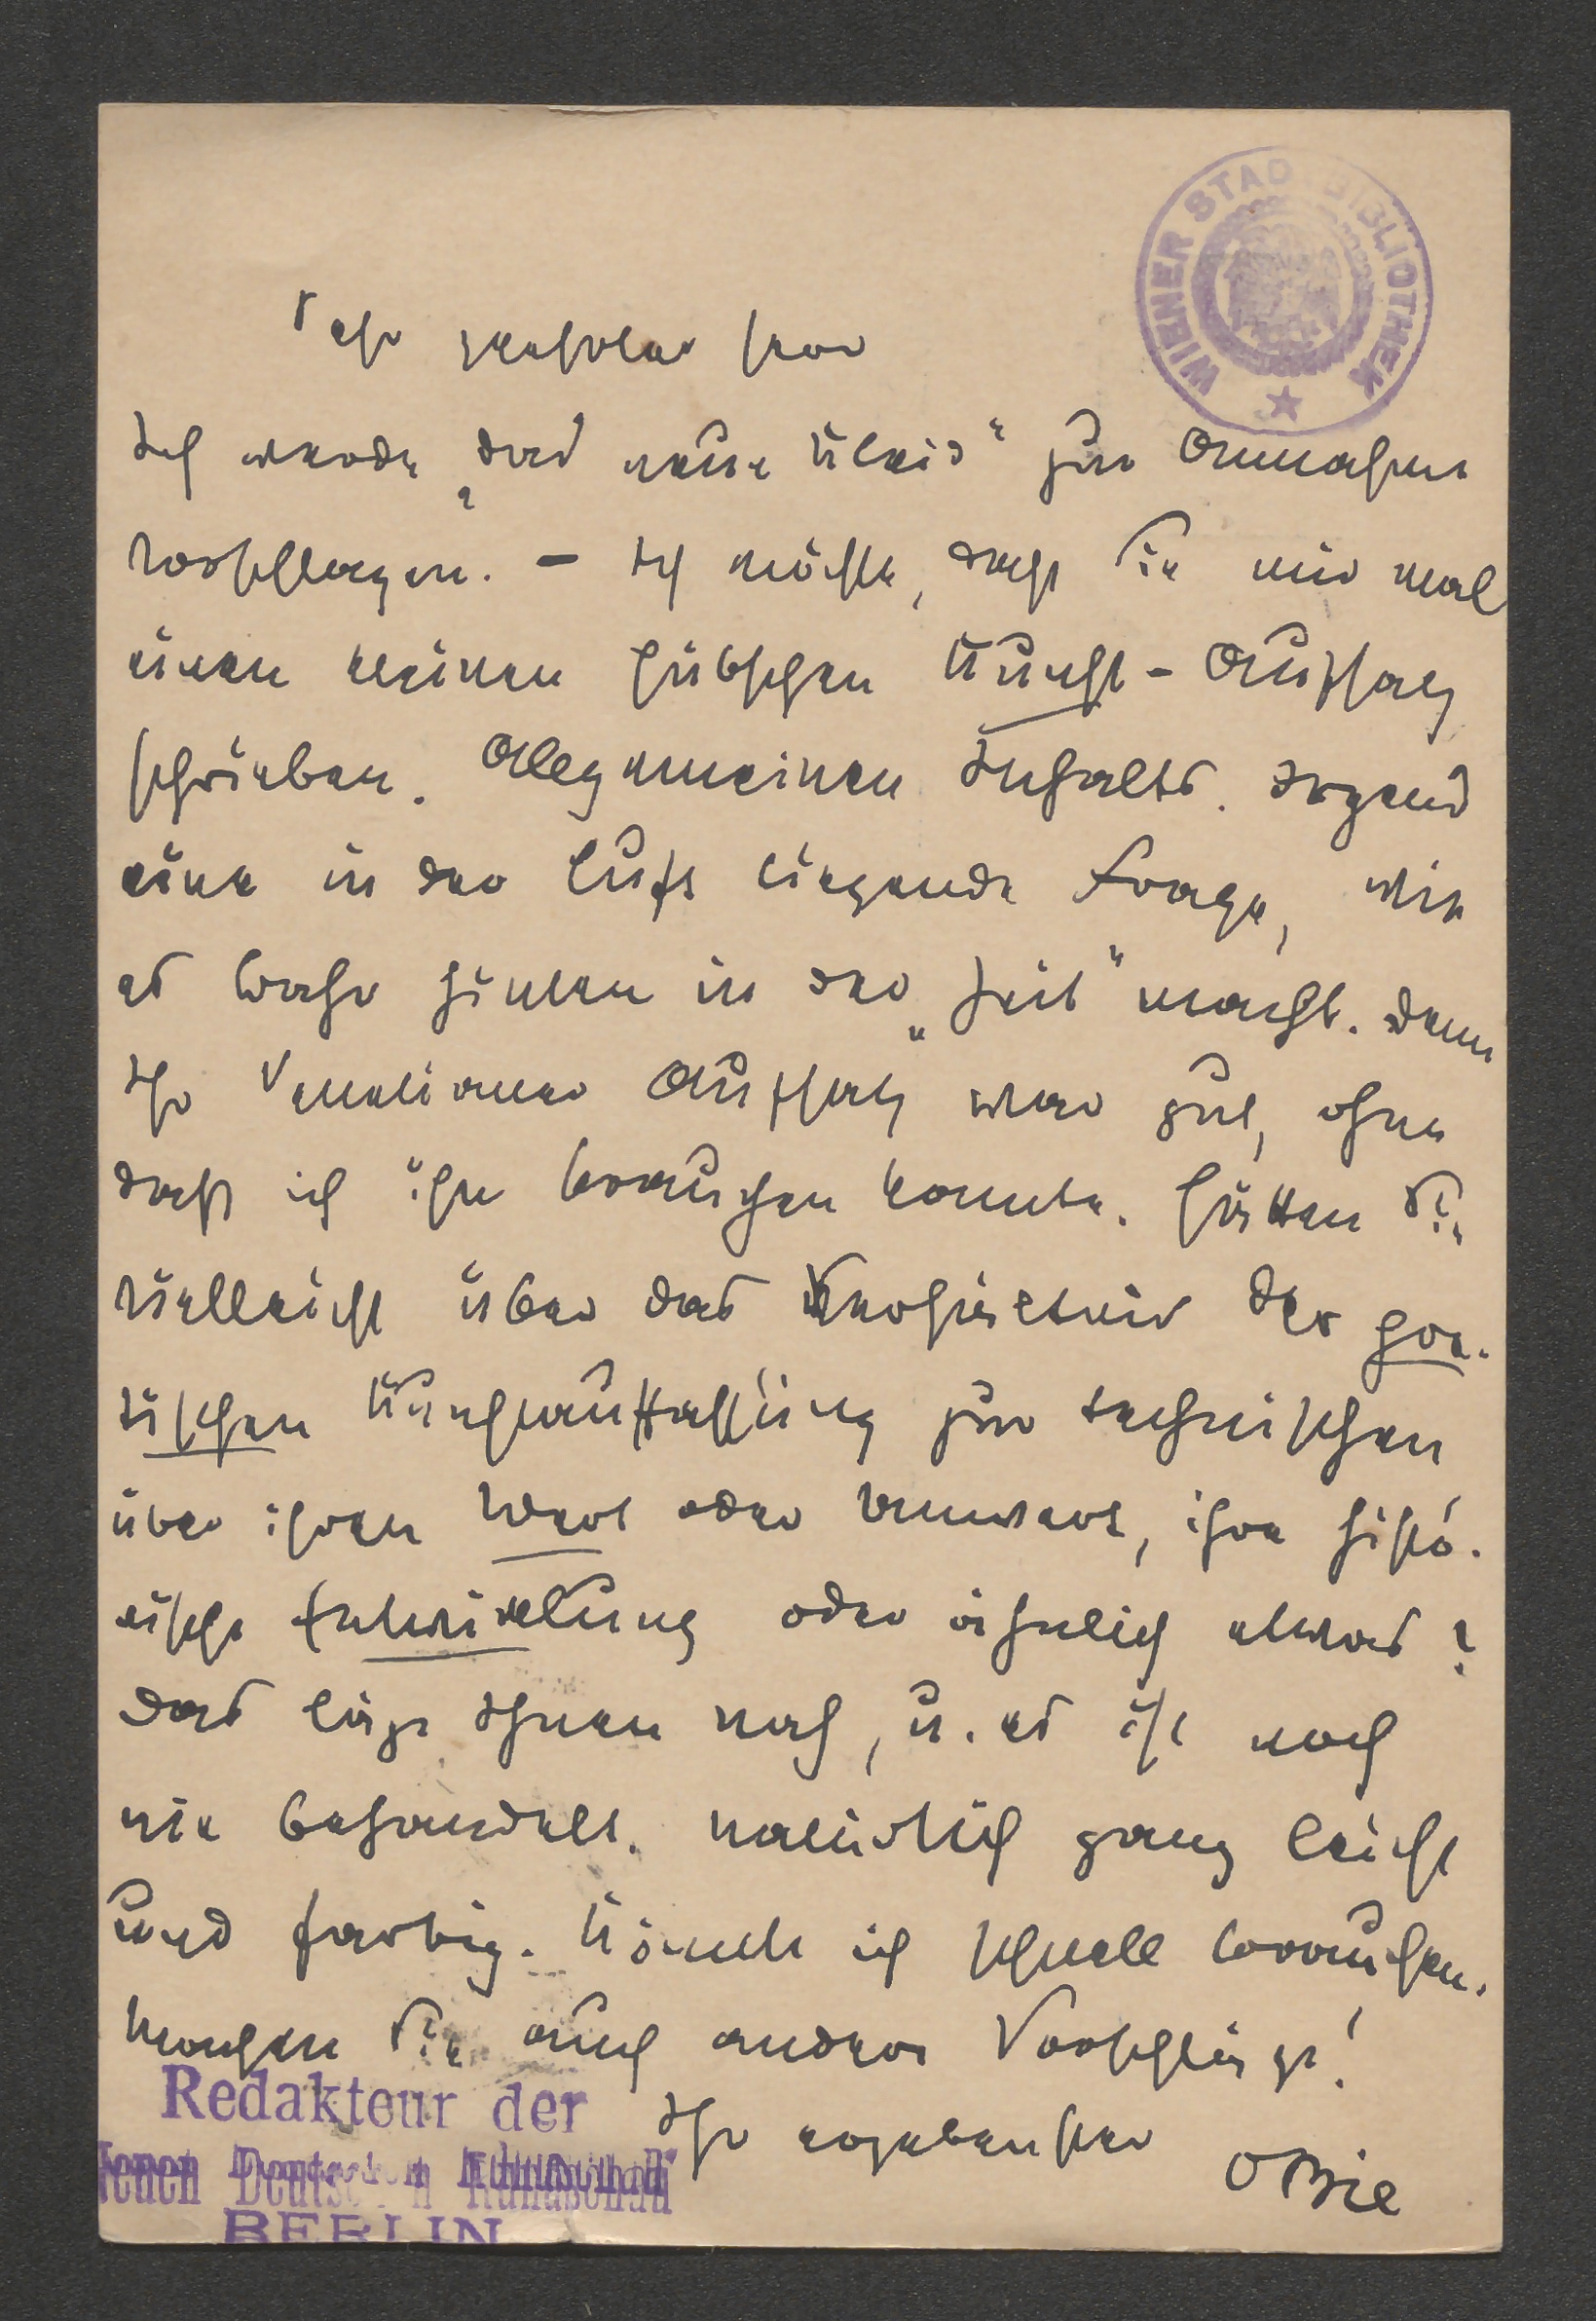 WIENER STADTBIBLIOTHEK
Sehr verehrter Herr
Ich werde „das neue Kleid“ zur Annahme
vorschlagen. – Ich möchte, dass Sie mir mal
einen kleinen hübschen Kunst-Aufsatz
schrieben. Allgemeinen Inhalts. Irgend
eine in der Luft liegende Frage, wie
es Bahr hinten in der „Zeit“ macht. Denn
Ihr Venetianer Aufsatz war gut, ohne
dass ich ihn brauchen konnte. Hätten Sie
vielleicht über das Verhältnis der poe-
tischen Kunstauffassung zur technischen
über ihren Wert oder Unwert, ihre histo-
rische Entwicklung oder ähnlich etwas?
Das läge Ihnen nah, u. es ist noch
nie behandelt. Natürlich ganz leicht
und farbig. Könnte ich schnell brauchen.
Machen Sie auch andere Vorschläge!
Ihr ergebenster
OBie
Redakteur der
Neuen Deutschen Rundschau
BERLIN